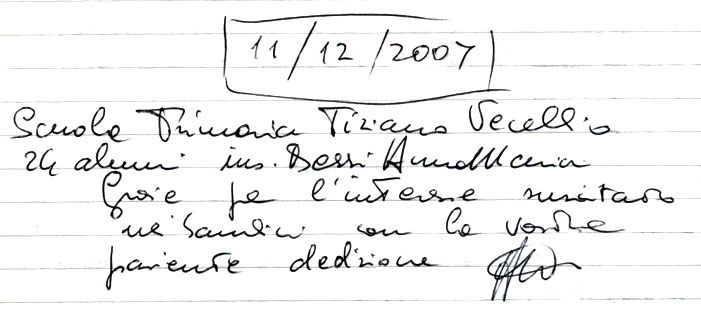 11/12/2007
Scuola Primaria Tiziano Vecellio
24 alunni ins. Bessi AnnaMaria
Grazie per l'interesse suscitato
nei bambini con la vostra
paziente dedizione